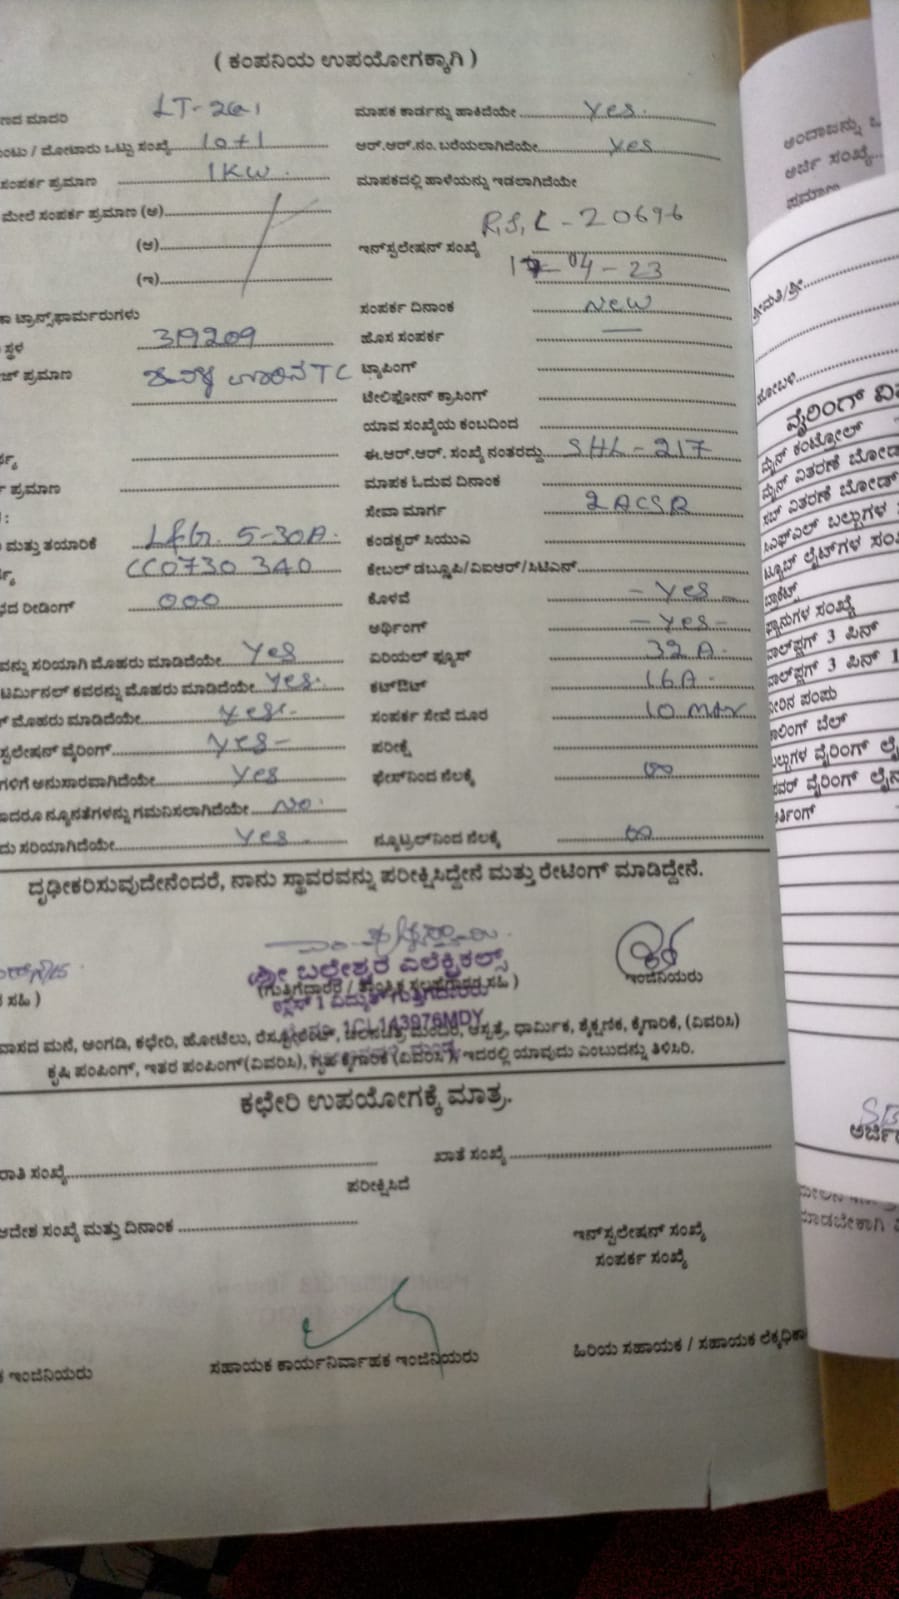 ( ಕಂಪನಿಯ ಉಪಯೋಗಕ್ಕಾಗಿ )
ಣದ ಮಾದರಿ LT-2a1 ಮಾಪಕ ಕಾರ್ಡನ್ನು ಹಾಕಿದೆಯೇ yes.
ಂಟು / ಮೋಟಾರು ಒಟ್ಟು ಸಂಖ್ಯೆ 10+1 ಆರ್.ಆರ್.ನಂ. ಬರೆಯಲಾಗಿದೆಯೇ yes
ಸಂಪರ್ಕ ಪ್ರಮಾಣ 1KW. ಮಾಪಕದಲ್ಲಿ ಹಾಳೆಯನ್ನು ಇಡಲಾಗಿದೆಯೇ
ಮೇಲೆ ಸಂಪರ್ಕ ಪ್ರಮಾಣ (ಅ)
(ಆ) ಇನ್‌ಸ್ಟಲೇಷನ್ ಸಂಖ್ಯೆ R.S.L-20696
(ಇ) 17-04-23
ಸಂಪರ್ಕ ದಿನಾಂಕ New
ಾ ಟ್ರಾನ್ಸ್‌ಫಾರ್ಮರುಗಳು
ಸ್ಥಳ 319209 ಹೊಸ ಸಂಪರ್ಕ —
ಜ್ ಪ್ರಮಾಣ TC ಟ್ಯಾಪಿಂಗ್
ಟೇಲಿಫೋನ್ ಕ್ರಾಸಿಂಗ್
ಯಾವ ಸಂಖ್ಯೆಯ ಕಂಬದಿಂದ
ಈ.ಆರ್.ಆರ್. ಸಂಖ್ಯೆ ನಂತರದ್ದು SHL-217
ಪ್ರಮಾಣ ಮಾಪಕ ಓದುವ ದಿನಾಂಕ
ಸೇವಾ ಮಾರ್ಗ 2ACSR
ಮತ್ತು ತಯಾರಿಕೆ L&G. 5-30A. ಕಂಡಕ್ಟರ್ ಸಿಯುಎ
CC0730 340 ಕೇಬಲ್ ಡಬ್ಲ್ಯೂಪಿ/ವಿಐಆರ್/ಸಿಟಿಎನ್
ದ ರೀಡಿಂಗ್ 000 ಕೊಳವೆ - yes -
ಅರ್ಥಿಂಗ್ - yes -
ವನ್ನು ಸರಿಯಾಗಿ ಮೊಹರು ಮಾಡಿದೆಯೇ yes ಏರಿಯಲ್ ಫ್ಯೂಸ್ 32A.
ಟರ್ಮಿನಲ್ ಕವರನ್ನು ಮೊಹರು ಮಾಡಿದೆಯೇ yes. ಕಟ್‌ಔಟ್ 16A.
ಮೊಹರು ಮಾಡಿದೆಯೇ yes. ಸಂಪರ್ಕ ಸೇವೆ ದೂರ 10 mtr
ಸ್ಟಲೇಷನ್ ವೈರಿಂಗ್ yes- ಪರೀಕ್ಷೆ
ಗಳಿಗೆ ಅನುಸಾರವಾಗಿದೆಯೇ yes ಫೇಸ್‌ನಿಂದ ನೆಲಕ್ಕೆ ∞
ಾದರೂ ನ್ಯೂನತೆಗಳನ್ನು ಗಮನಿಸಲಾಗಿದೆಯೇ No.
ದು ಸರಿಯಾಗಿದೆಯೇ yes. ನ್ಯೂಟ್ರಲ್‌ನಿಂದ ನೆಲಕ್ಕೆ ∞
ದೃಢೀಕರಿಸುವುದೇನೆಂದರೆ, ನಾನು ಸ್ಥಾವರವನ್ನು ಪರೀಕ್ಷಿಸಿದ್ದೇನೆ ಮತ್ತು ರೇಟಿಂಗ್ ಮಾಡಿದ್ದೇನೆ.
ಶ್ರೀ ಬಲ್ಲೇಶ್ವರ ಎಲೆಕ್ಟ್ರಿಕಲ್ಸ್
ಸಹಿ ) ಇಂಜಿನಿಯರು
ಕ್ಲಾಸ್ 1 ವಿದ್ಯುತ್ ಗುತ್ತಿಗೆದಾರರು
1CL143976MDY
ವಾಸದ ಮನೆ, ಅಂಗಡಿ, ಕಛೇರಿ, ಹೋಟೆಲು, ರೆಸ್ಟೋರೆಂಟ್, ಚಲನಚಿತ್ರ ಮಂದಿರ, ಆಸ್ಪತ್ರೆ, ಧಾರ್ಮಿಕ, ಶೈಕ್ಷಣಿಕ, ಕೈಗಾರಿಕೆ, (ವಿವರಿಸಿ)
ಕೃಷಿ ಪಂಪಿಂಗ್, ಇತರ ಪಂಪಿಂಗ್(ವಿವರಿಸಿ), ಗೃಹ ಕೈಗಾರಿಕೆ (ವಿವರಿಸಿ), ಇದರಲ್ಲಿ ಯಾವುದು ಎಂಬುದನ್ನು ತಿಳಿಸಿರಿ.
ಕಛೇರಿ ಉಪಯೋಗಕ್ಕೆ ಮಾತ್ರ.
ರಾತಿ ಸಂಖ್ಯೆ ಖಾತೆ ಸಂಖ್ಯೆ
ಪರೀಕ್ಷಿಸಿದೆ
ಆದೇಶ ಸಂಖ್ಯೆ ಮತ್ತು ದಿನಾಂಕ ಇನ್‌ಸ್ಟಲೇಷನ್ ಸಂಖ್ಯೆ
ಸಂಪರ್ಕ ಸಂಖ್ಯೆ
ಇಂಜಿನಿಯರು ಸಹಾಯಕ ಕಾರ್ಯನಿರ್ವಾಹಕ ಇಂಜಿನಿಯರು ಹಿರಿಯ ಸಹಾಯಕ / ಸಹಾಯಕ ಲೆಕ್ಕಧಿಕಾ
ಅಂದಾಜನ್ನು
ಅರ್ಜಿ ಸಂಖ್ಯೆ
ಪ್ರಮಾಣ
ಶ್ರೀಮತಿ/ಶ್ರೀ
ಹೋಬಳಿ
ವೈರಿಂಗ್ ವಿವ
ಮೈನ್ ಕಂಟ್ರೋಲ್
ಮೈನ್ ವಿತರಣೆ ಬೋರ್ಡ್
ಸಬ್ ವಿತರಣೆ ಬೋರ್ಡ್
ಸಿಎಫ್‌ಎಲ್ ಬಲ್ಬುಗಳ
ಟ್ಯೂಬ್ ಲೈಟ್‌ಗಳ ಸಂ
ಬ್ರಾಕೆಟ್ಸ್
ಫ್ಯಾನುಗಳ ಸಂಖ್ಯೆ
ವಾಲ್‌ಪ್ಲಗ್ 3 ಪಿನ್
ವಾಲ್‌ಪ್ಲಗ್ 3 ಪಿನ್ 1
ನೀರಿನ ಪಂಪು
ಕಾಲಿಂಗ್ ಬೆಲ್
ಬಲ್ಬುಗಳ ವೈರಿಂಗ್ ಲೈ
ಪವರ್ ವೈರಿಂಗ್ ಲೈನ
ಅರ್ತಿಂಗ್
ಅರ್ಜಿ
ಮಾಡಬೇಕಾಗಿ